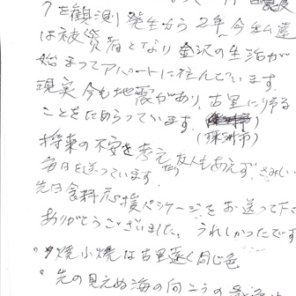 7を観測 発生から2年、今年も建
は被災者となり金沢の生活が
始まってアパートに住んでいます。
現実今も地震があり、古里に帰る
ことをためらっています。
(珠洲市)
将来の不安を考え 友人もあえず、さみしい
毎日を送っています。
先日食料応援パッケージをお送って下さ
ありがとうございました、うれしかったです
夕焼小焼は古里遠く同じ色
先の見えぬ海の向こうの